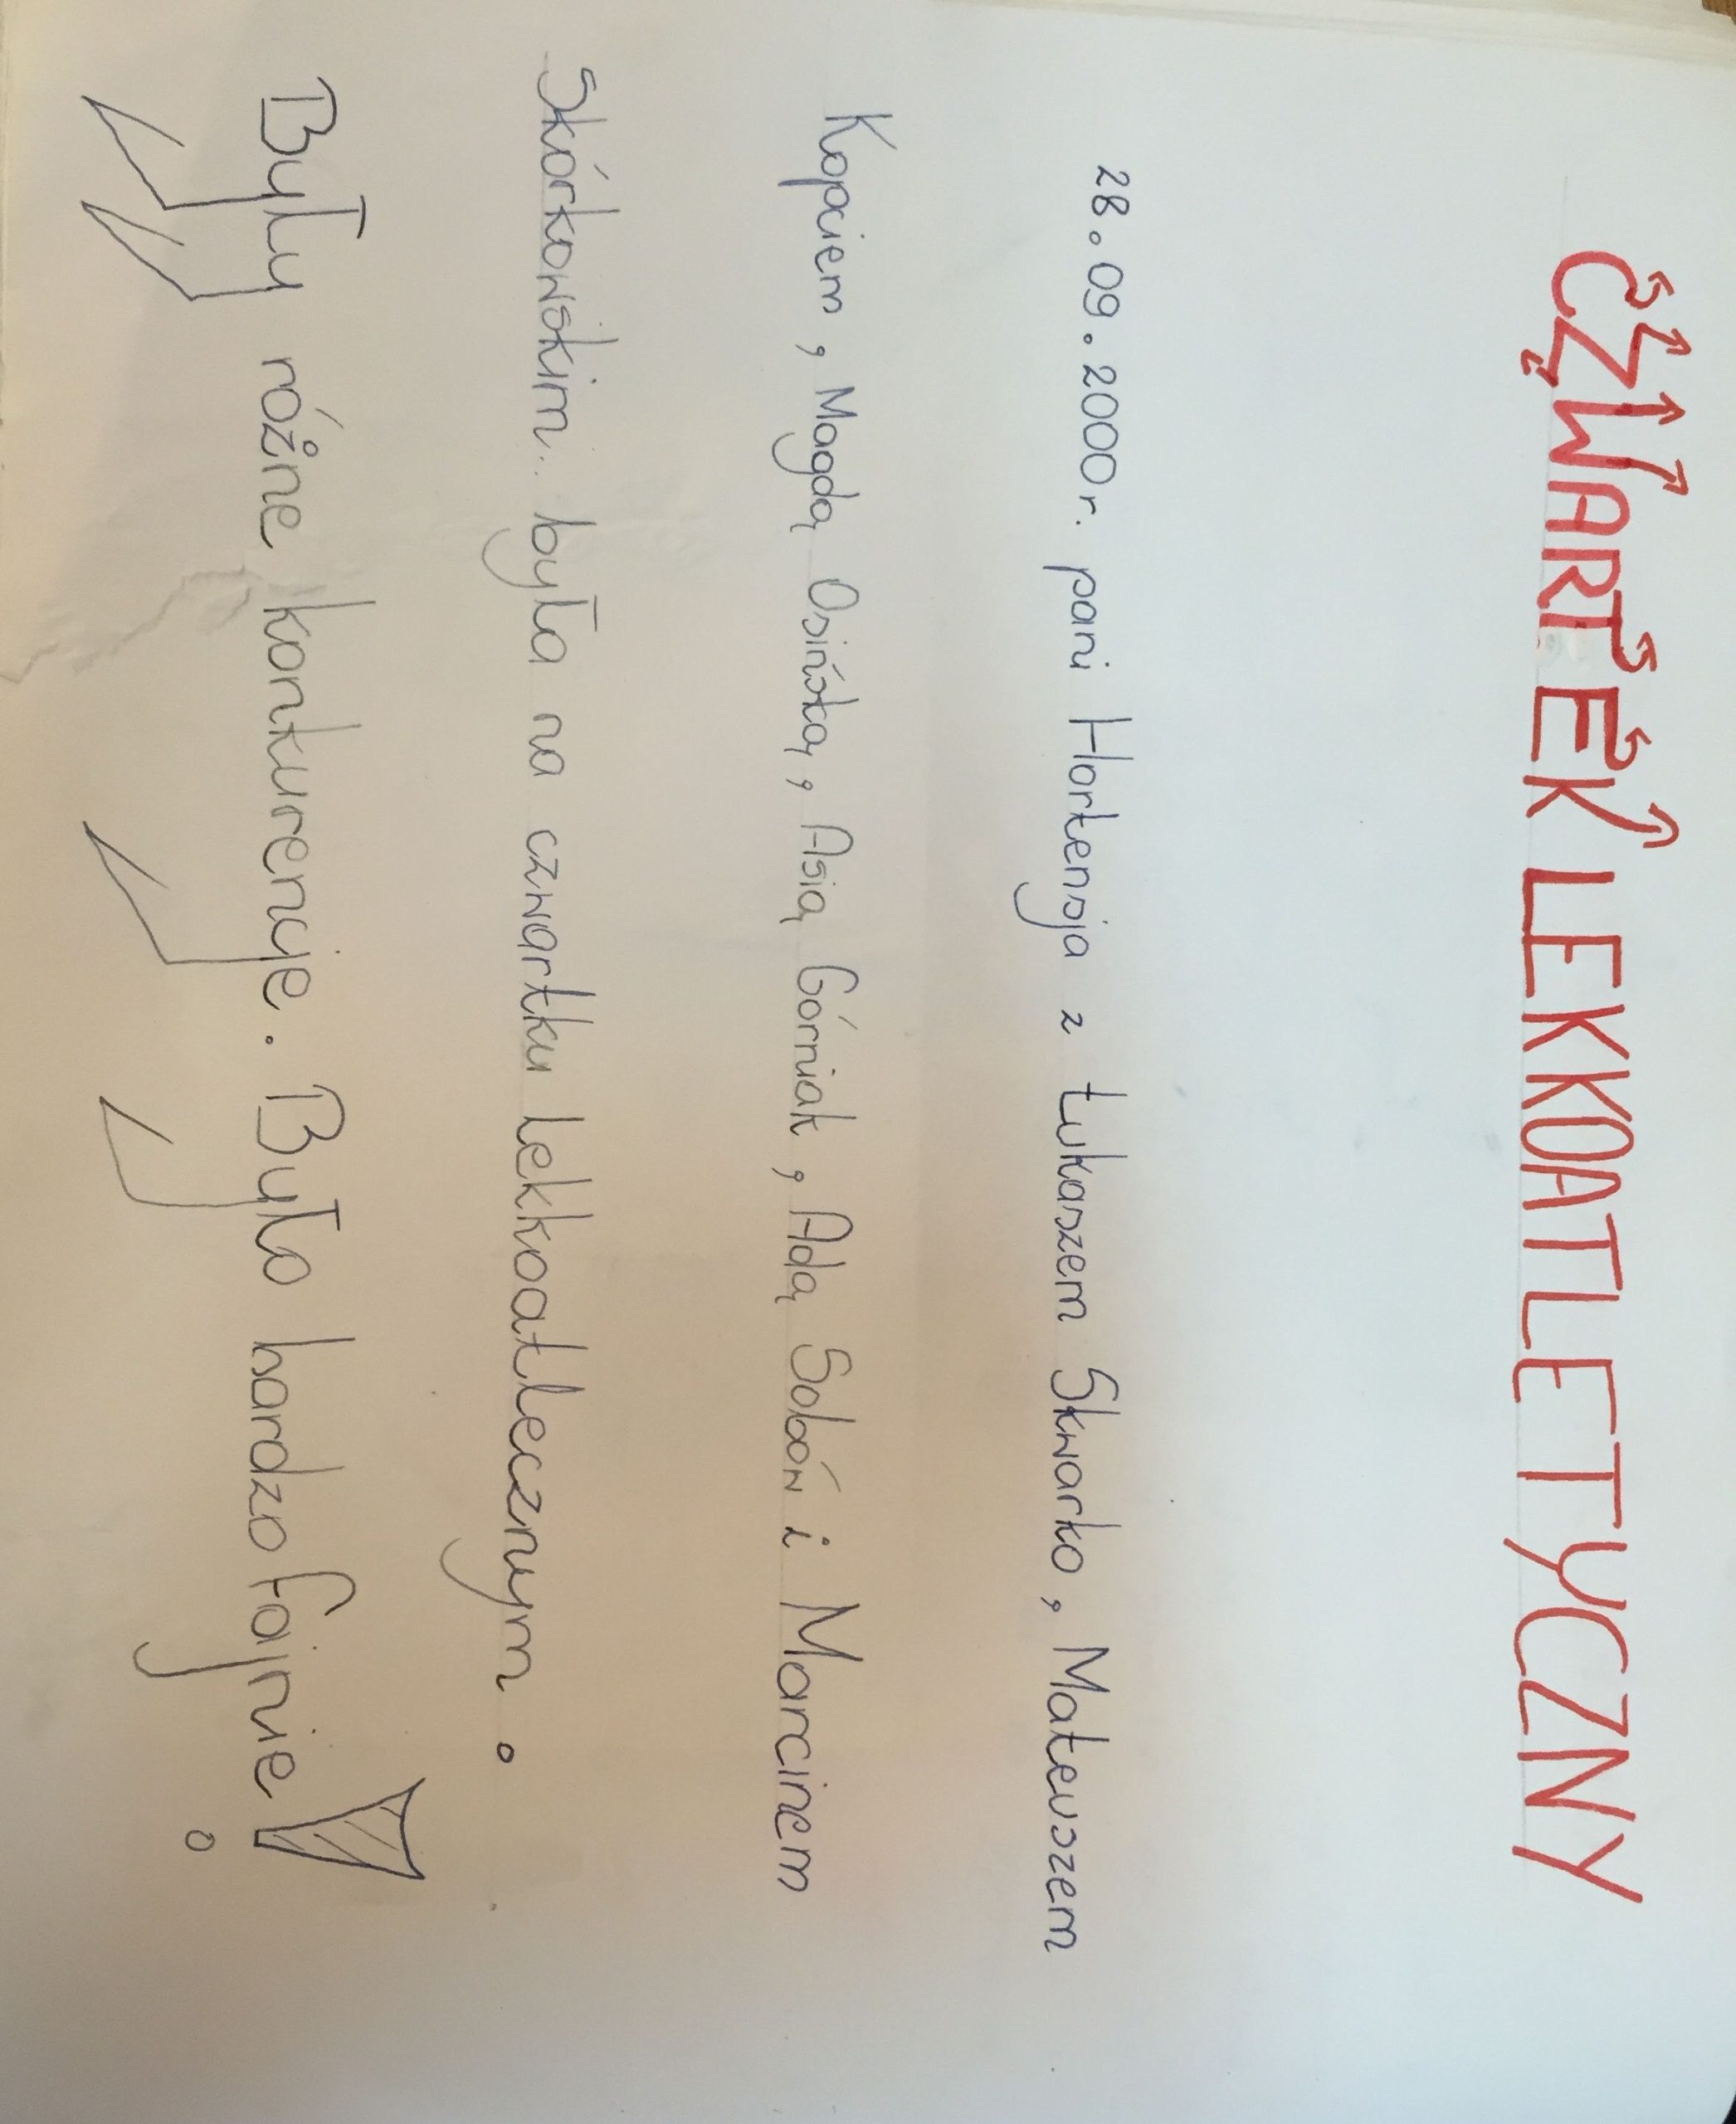 CZWARTEK LEKKOATLETYCZNY
28.09.2000r. pani Hortensja z Łukaszem Skwarko, Mateuszem
Kopciem, Magdą Osińską, Asią Górniak, Adą Soboń i Marcinem
Skórkowskim.. była na czwartku lekkoatlecznym.
Były różne konkurencje. Było bardzo fajnie!